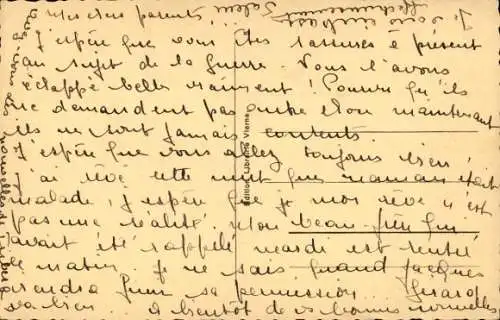 Mes chers parents !
J'espère que vous êtes rassurés à présent
au sujet de la guerre. Vous l'avons
échappé belle vraiment ! Pourvu qu'ils
ne demandent pas autre chose maintenant
ils ne sont jamais contents
J'espère que vous allez toujours bien !
J'ai rêvé cette nuit que maman était
malade, j'espère que mon rêve n'est
pas une réalité. Mon beau-frère qui
avait été rappelé mardi est rentré
ce matin. Je ne sais quand Jacques
viendra pour sa permission. Gérard
va bien. à bientôt de vos bonnes nouvelles
Je vous embrasse
affectueusement
nouvelles de
Edition Librairie Vierne